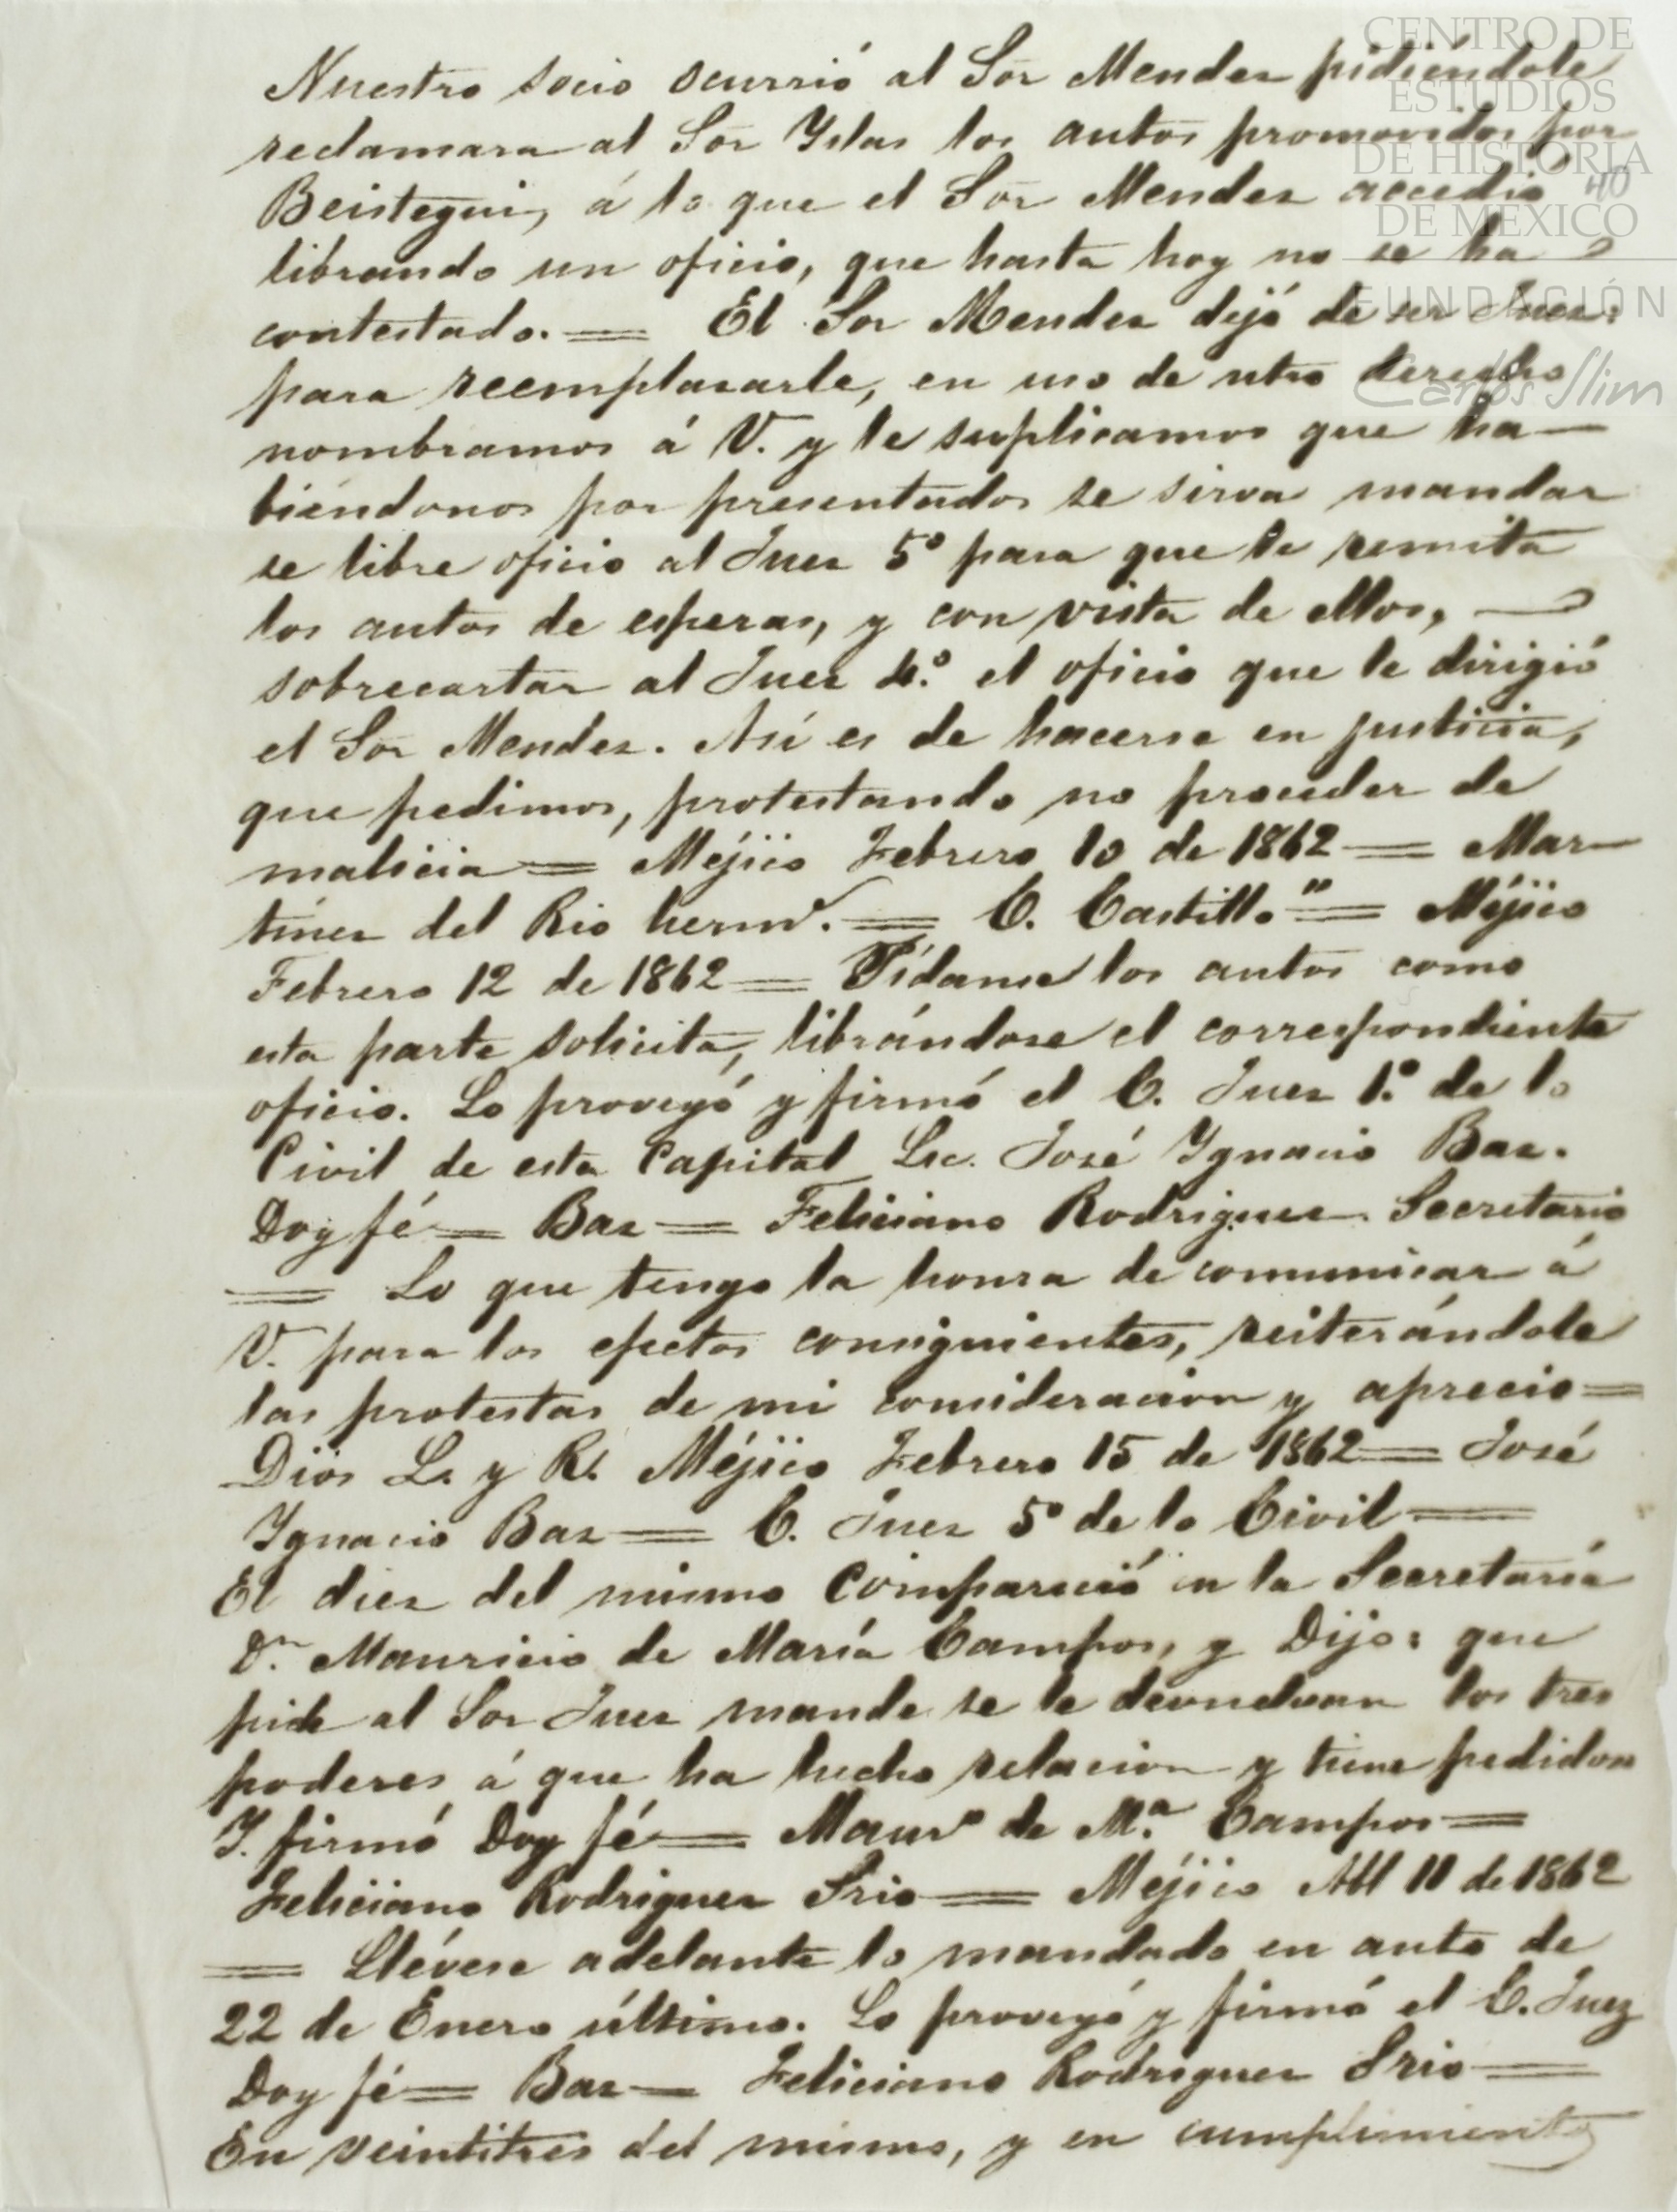 CENTRO DE
ESTUDIOS
DE HISTORIA
DE MEXICO
FUNDACIÓN
Carlos Slim
40
Nuestro socio ocurrió al Sor Mendez pidiéndole
reclamara al Sor Yslas los autos promovidos por
Beistegui, á lo que el Sor Mendez accedió
librando un oficio, que hasta hoy no se ha
contestado. = El Sor Mendez dejó de ser Juez:
para reemplazarle, en uso de ntro derecho
nombramos á V. y le suplicamos que ha—
biéndonos por presentados se sirva mandar
se libre oficio al Juez 5º para que le remita
los autos de esperas, y con vista de ellos, —
sobrecartar al Juez 4.º el oficio que le dirigió
el Sor Mendez. Así es de hacerse en justicia,
que pedimos, protestando no proceder de
malicia = Méjico Febrero 10 de 1862 = Mar—
tínez del Rio herms. = C. Castillo" = Méjico
Febrero 12 de 1862 = Pídanse los autos como
esta parte solicita, librándose el correspondiente
oficio. Lo proveyó y firmó el C. Juez 1.º de lo
Civil de esta Capital Lic. José Ygnacio Baz.
Doy fé = Baz = Feliciano Rodriguez Secretario
= Lo que tengo la honra de comunicar á
V. para los efectos consiguientes, reiterándole
las protestas de mi consideracion y aprecio =
Dios L. y R. Méjico Febrero 15 de 1862 = José
Ygnacio Baz = C. Juez 5º de lo Civil =
El diez del mismo Compareció en la Secretaría
Dn. Mauricio de María Campos, y Dijo: que
pide al Sor Juez mande se le devuelvan los tres
poderes á que ha hecho relacion y tiene pedidos
Y. firmó Doy fé = Maurº de M.ª Campos =
Feliciano Rodriguez Srio = Méjico Abl 11 de 1862
= Llévese adelante lo mandado en auto de
22 de Enero último. Lo proveyó y firmó el C. Juez
Doy fé = Baz = Feliciano Rodriguez Srio =
En veintitres del mismo, y en cumplimiento